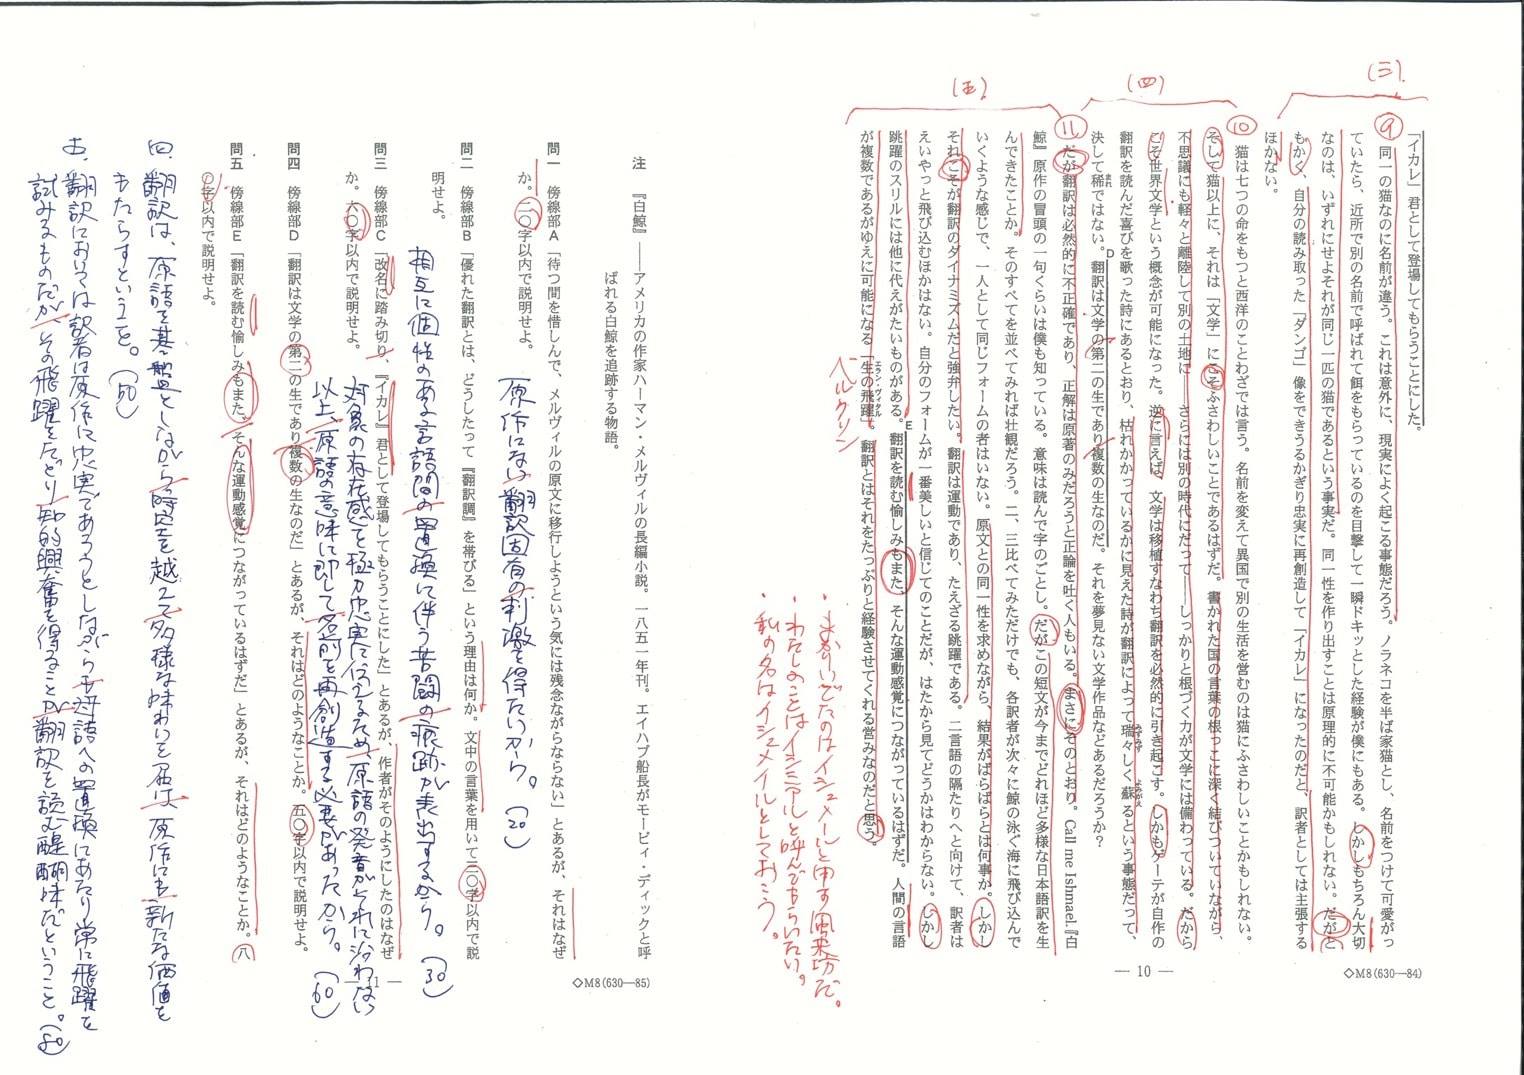 (三)
(四)
(五)
「イカレ」君として登場してもらうことにした。
⑨ 同一の猫なのに名前が違う。これは意外に、現実によく起こる事態だろう。ノラネコを半ば家猫とし、名前をつけて可愛がっ
ていたら、近所で別の名前で呼ばれて餌をもらっているのを目撃して一瞬ドキッとした経験が僕にもある。しかしもちろん大切
なのは、いずれにせよそれが同じ一匹の猫であるという事実だ。同一性を作り出すことは原理的に不可能かもしれない。だがと
もかく、自分の読み取った「ダンゴ」像をできうるかぎり忠実に再創造して「イカレ」になったのだと、訳者としては主張する
ほかない。
⑩ 猫は七つの命をもつと西洋のことわざでは言う。名前を変えて異国で別の生活を営むのは猫にふさわしいことかもしれない。
そして猫以上に、それは「文学」にこそふさわしいことであるはずだ。書かれた国の言葉の根っこに深く結びついていながら、
不思議にも軽々と離陸して別の土地に、さらには別の時代にだって——しっかりと根づく力が文学には備わっている。だから
こそ世界文学という概念が可能になった。逆に言えば、文学は移植すなわち翻訳を必然的に引き起こす。しかもゲーテが自作の
翻訳を読んだ喜びを歌った時にあるとおり、枯れかかっているかに見えた詩が翻訳によって瑞々しく蘇るという事態だって、
みずみず
よみがえ
決して稀ではない。翻訳は文学の第二の生であり複数の生なのだ。それを夢見ない文学作品などあるだろうか?
まれ
D
⑪ だが翻訳は必然的に不正確であり、正解は原著のみだろうと正論を吐く人もいる。まさにそのとおり。Call me Ishmael.『白
鯨』原作の冒頭の一句くらいは僕も知っている。意味は読んで字のごとし。だがこの短文が今までどれほど多様な日本語訳を生
んできたことか。そのすべてを並べてみれば壮観だろう。二、三比べてみただけでも、各訳者が次々に鯨の泳ぐ海に飛び込んで
いくような感じで、一人として同じフォームの者はいない。原文との同一性を求めながら、結果がばらばらとは何事か。しかし
それこそが翻訳のダイナミズムだと強弁したい。翻訳は運動であり、たえざる跳躍である。二言語の隔たりへと向けて、訳者は
えいやっと飛び込むほかはない。自分のフォームが一番美しいと信じてのことだが、はたから見てどうかはわからない。しかし
跳躍のスリルには他に代えがたいものがある。翻訳を読む愉しみもまた、そんな運動感覚につながっているはずだ。人間の言語
E
が複数であるがゆえに可能になる「生の飛躍」。翻訳とはそれをたっぷりと経験させてくれる営みなのだと思う。
エラン・ヴィタル
ベルクソン
・まかりいでたのはイシュメールと申す風来坊だ。
・わたしのことはイシュミアルと呼んでもらいたい。
・私の名はイシュメイルとしておこう。
— 10 —
◇M8(630—84)
注 『白鯨』——アメリカの作家ハーマン・メルヴィルの長編小説。一八五一年刊。エイハブ船長がモービィ・ディックと呼
ばれる白鯨を追跡する物語。
問一 傍線部A「待つ間を惜しんで、メルヴィルの原文に移行しようという気には残念ながらならない」とあるが、それはなぜ
か。二〇字以内で説明せよ。
原作にない翻訳固有の刺激を得たいから。(20)
問二 傍線部B「優れた翻訳とは、どうしたって『翻訳調』を帯びる」という理由は何か。文中の言葉を用いて三〇字以内で説
明せよ。
相互に個性のある言語間の置換に伴う苦闘の痕跡が表出するから。(30)
問三 傍線部C「改名に踏み切り、『イカレ』君として登場してもらうことにした」とあるが、作者がそのようにしたのはなぜ
か。六〇字以内で説明せよ。
対象の存在感を極力忠実に伝えるため、原語の発音がそれに沿わない
以上、原語の意味に即して名前を再創造する必要があったから。(60)
問四 傍線部D「翻訳は文学の第二の生であり複数の生なのだ」とあるが、それはどのようなことか。五〇字以内で説明せよ。
問五 傍線部E「翻訳を読む愉しみもまた、そんな運動感覚につながっているはずだ」とあるが、それはどのようなことか。八
〇字以内で説明せよ。
四、翻訳は、原語を基盤としながら時空を越えて多様な味わいを届け、原作にも新たな価値を
もたらすということ。(50)
五、翻訳においては訳者は原作に忠実であろうとしながらも対語への置換にあたり常に飛躍を
試みるものだが、その飛躍をたどり知的興奮を得ることが翻訳を読む醍醐味だということ。(80)
— 11 —
◇M8(630—85)